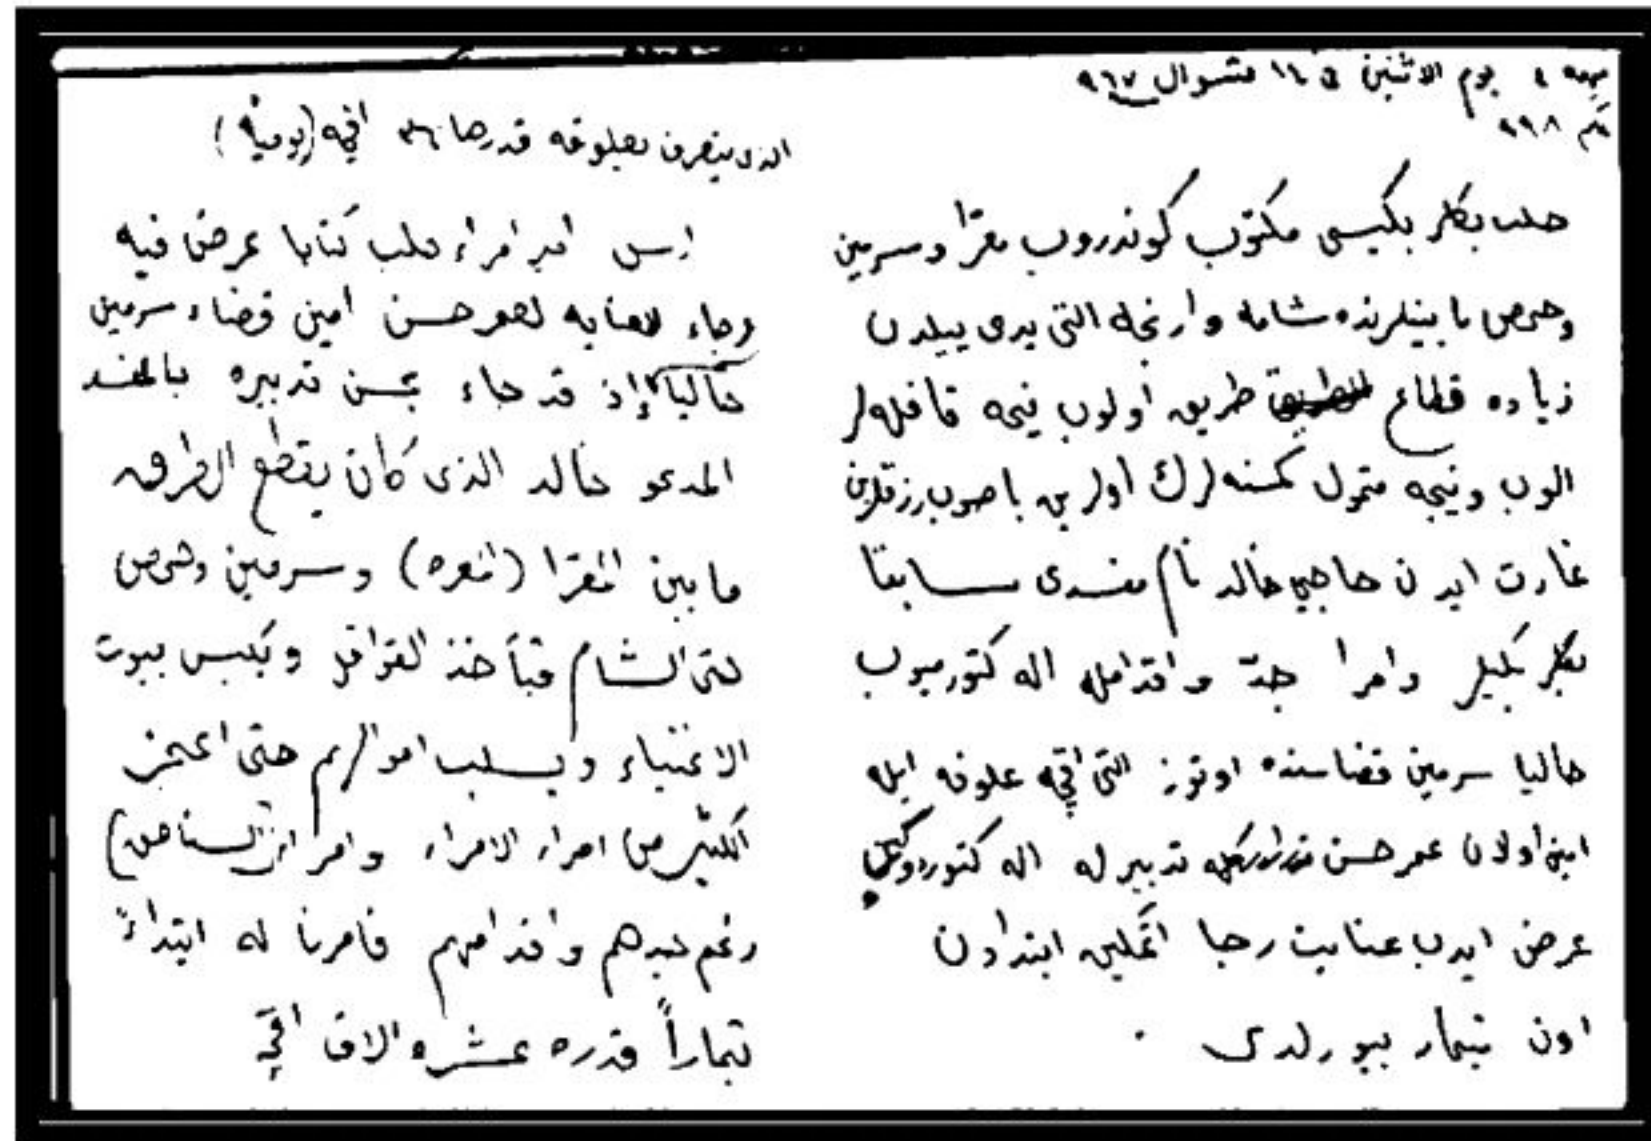 مهمه ٤ يوم الاثنين في ١٤ شوال ٩٦٧
رقم ٩٩٨
حلب بكلر بكيسى مكتوب كوندروب معرا وسرمين
وحمص ما بينلرنده شامه وارنجه التى يدى ييلدن
زياده قطاع طريق اولوب نيجه قافله لر
الوب ونيجه متمول كمسنه لرك اولرين باصوب رزقلرين
غارت ايدن حاجى خالد نام مفسدى سابقا
بكلر بكيلر وامرا جد واقدامله اله كتورميوب
حاليا سرمين قضاسنده اوتوز التى اقچه علوفه ايله
امين اولان عمر حسن تداركله تدبير له اله كتوردوكن
عرض ايدب عنايت رجا اتمكين ابتدادن
اون تيمار بيورلدى .
الذى يتصرف بعلوفه قدرها ٣٦ اقچه (يوميا)
ارسل امير امراء حلب كتابا عرض فيه
ورجاء لعنايه لعمر حسن امين قضاء سرمين
حاليا إذ قد جاء بحسن تدبيره بالمفسد
المدعو خالد الذى كان يقطع الطرق
ما بين المعرا (المعره) وسرمين وحمص
حتى الشام فيأخذ القوافل ويكبس بيوت
الاغنياء ويسلب اموالهم حتى اعجز
الكثير من امراء الامراء وامراء (السناجق)
رغم جدهم واقدامهم فامرنا له ابتداءً
تيماراً قدره عشره الاف اقچه